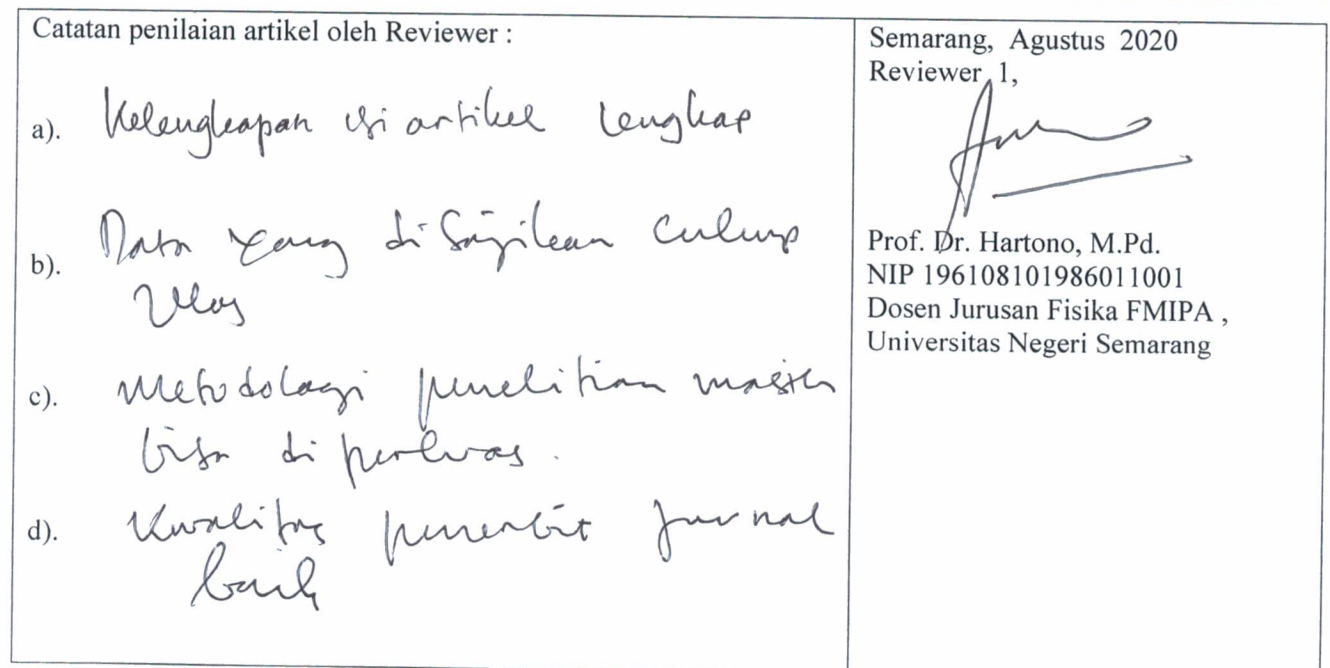 Catatan penilaian artikel oleh Reviewer :
a). Kelengkapan isi artikel lengkap
b). Data yang disajikan cukup
c). Metodologi penelitian masih
bisa diperluas.
d). Kwalitas penerbit jurnal
baik
Semarang, Agustus 2020
Reviewer 1,
Prof. Dr. Hartono, M.Pd.
NIP 196108101986011001
Dosen Jurusan Fisika FMIPA ,
Universitas Negeri Semarang